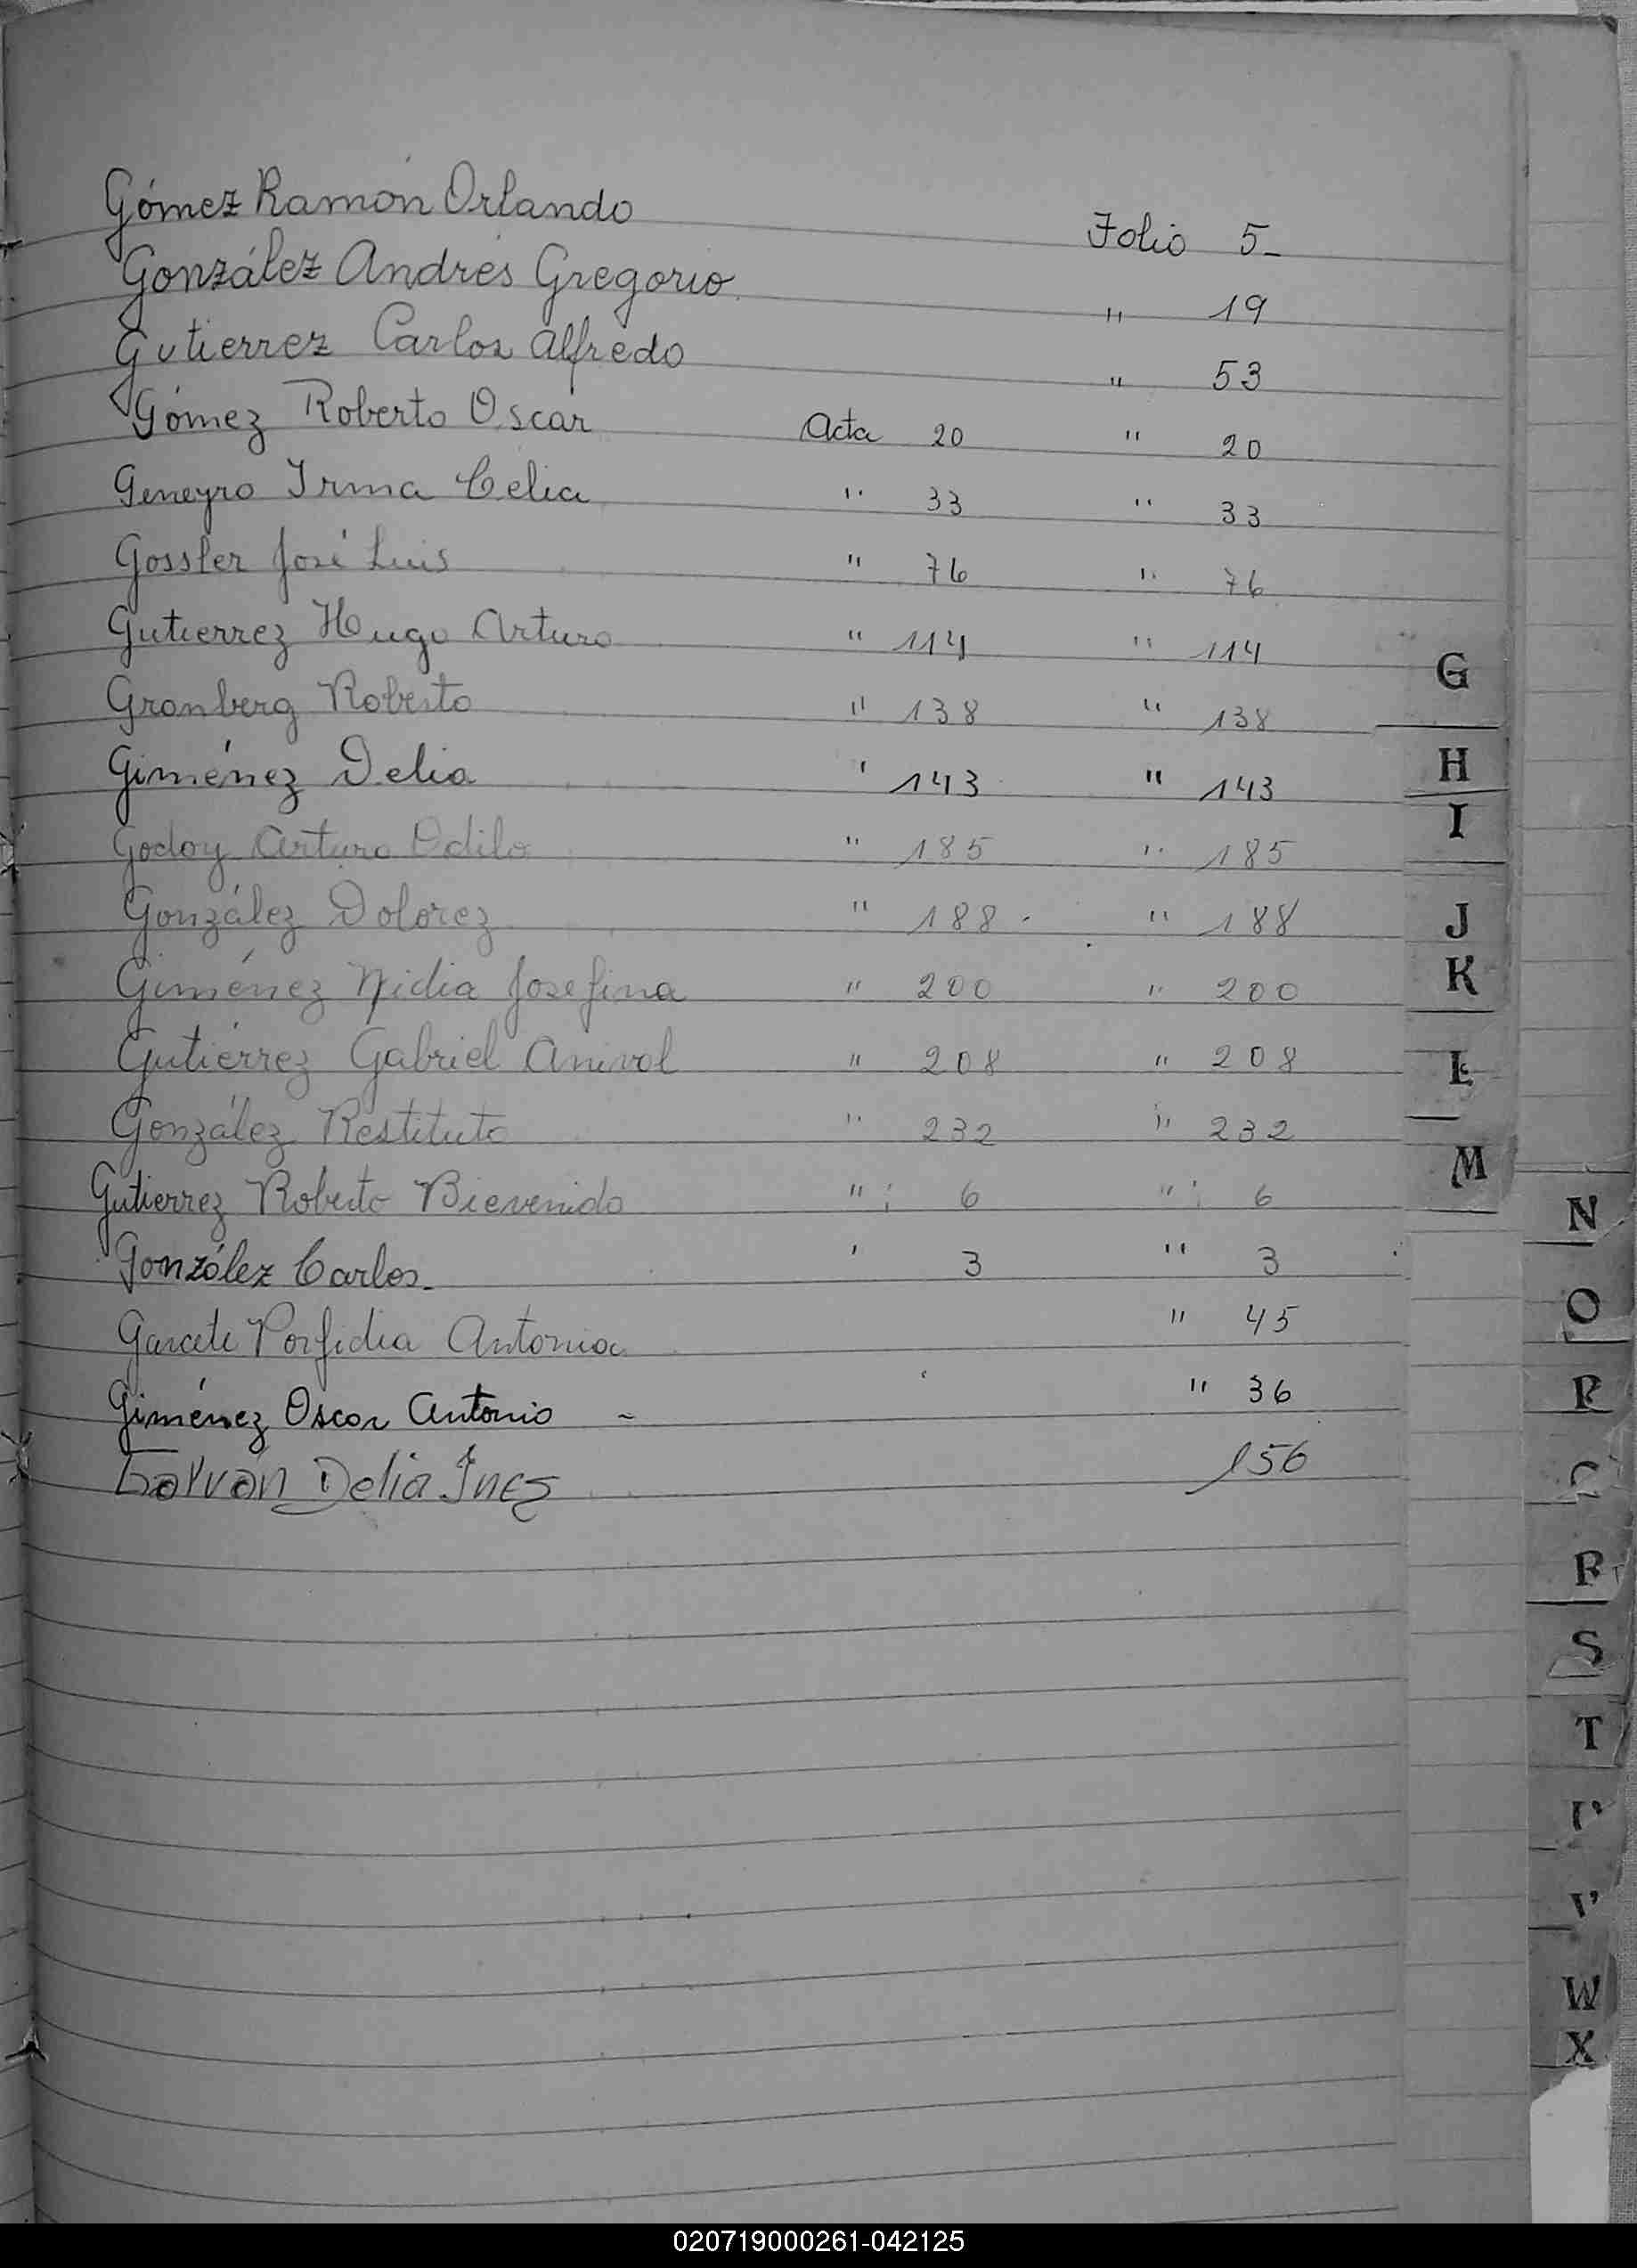 Gómez Ramón Orlando Folio 5-
González Andrés Gregorio " 19
Gutierrez Carlos Alfredo " 53
Gómez Roberto Oscar Acta 20 " 20
Geneyro Irma Celia " 33 " 33
Gossler José Luis " 76 " 76
Gutierrez Hugo Arturo " 114 " 114
Granberg Roberto " 138 " 138
Giménez Delia ' 143 " 143
Godoy Arturo Odilo " 185 " 185
González Dolorez " 188 " 188
Giménez Nidia Josefina " 200 " 200
Gutiérrez Gabriel Anival " 208 " 208
González Restituto " 232 " 232
Gutierrez Roberto Bievenido " : 6 " : 6
González Carlos- ' 3 " 3
Garcete Porfidia Antonia " 45
Giménez Oscar Antonio - " 36
Galván Delia Ines 156
G
H
I
J
K
L
M
N
O
P
R
S
T
V
W
X
020719000261-042125